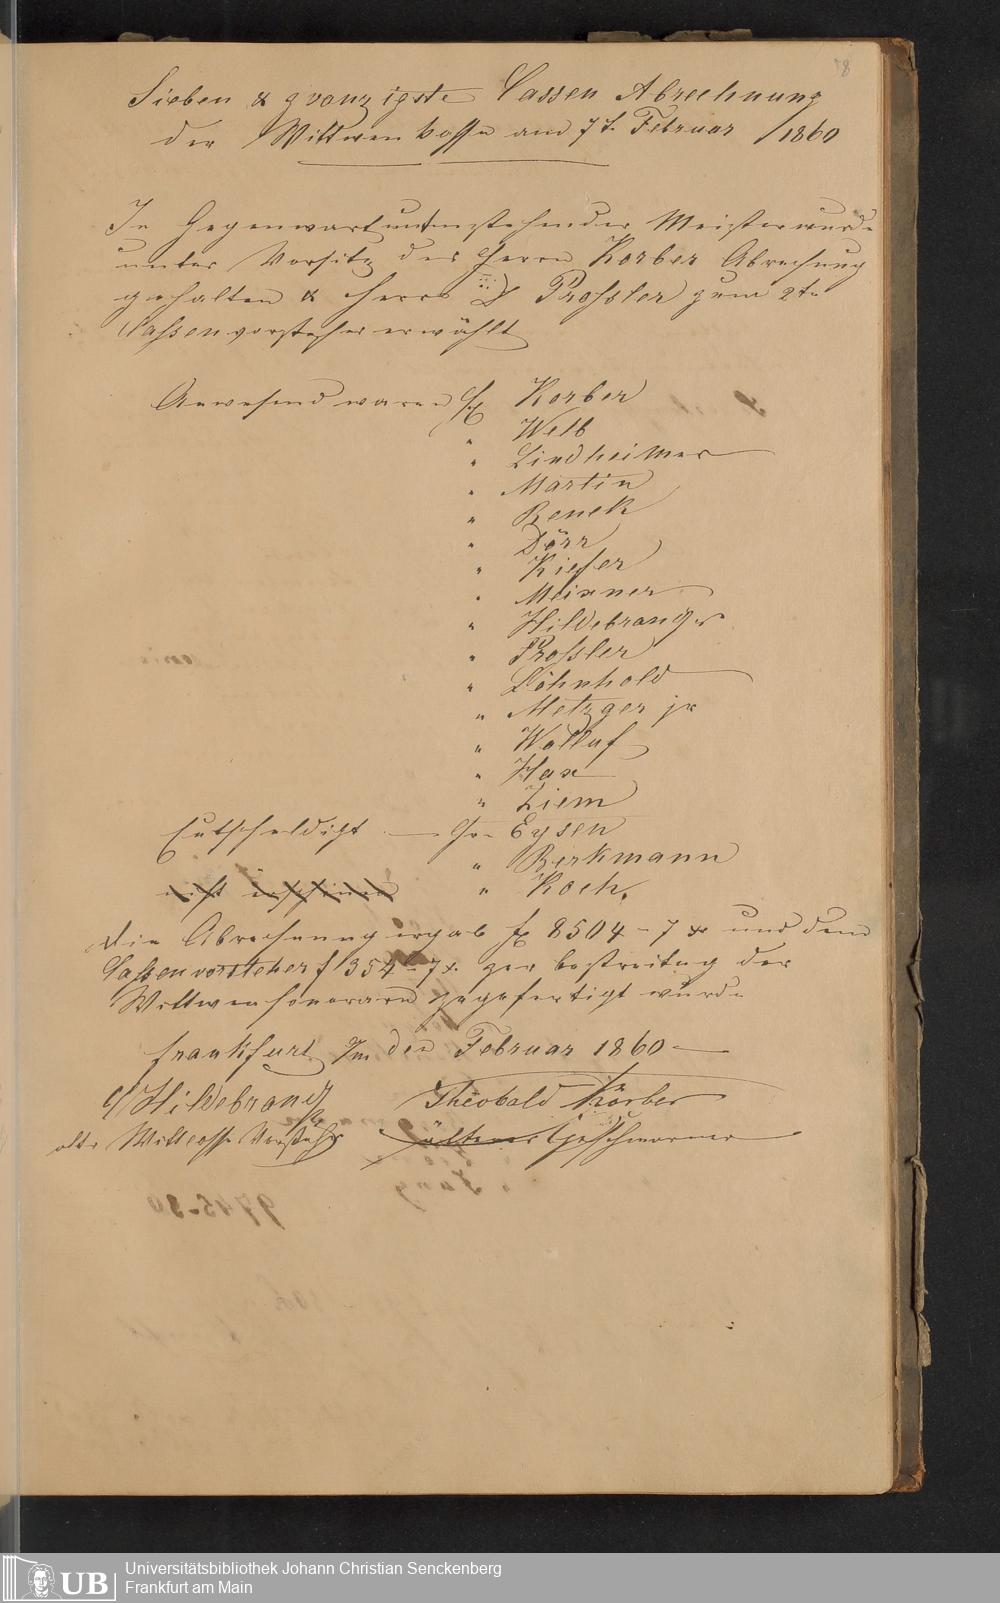 58
Sieben & zwanzigste Cassen Abrechnung
der Wittwen Casse am 7t. Februar /1860
In Gegenwart untenstehender Meister wurde
unter Vorsitz des Herrn Körber Abrechnung
gehalten & Herr Proſsler zum 2te
Caſsenvorsteher erwählt
Anwesend waren HH Körber
" Welb
" Lindheimer
" Martin
" Renck
" Dörr
" Kiefer
" Meixner
" Hildebrand
" Proſsler
" Löhnhold
" Metzger jr
" Wolluf
" Hax
" Ziem
Entschuldigt — Hr Eysen
" Berkmann
nicht erschienen " Koch.
Die Abrechnung ergab fl 8504 - 7 xr und dem
Caſsenvorsteher f 354 - 7 x. zur bestreitug der
Wittwenhonorare zugefertigt wurde
Frankfurt a/m den Februar 1860
Hildebrand Theobald Körber
alte Wittcasse Vorsteher älterer Geschworner